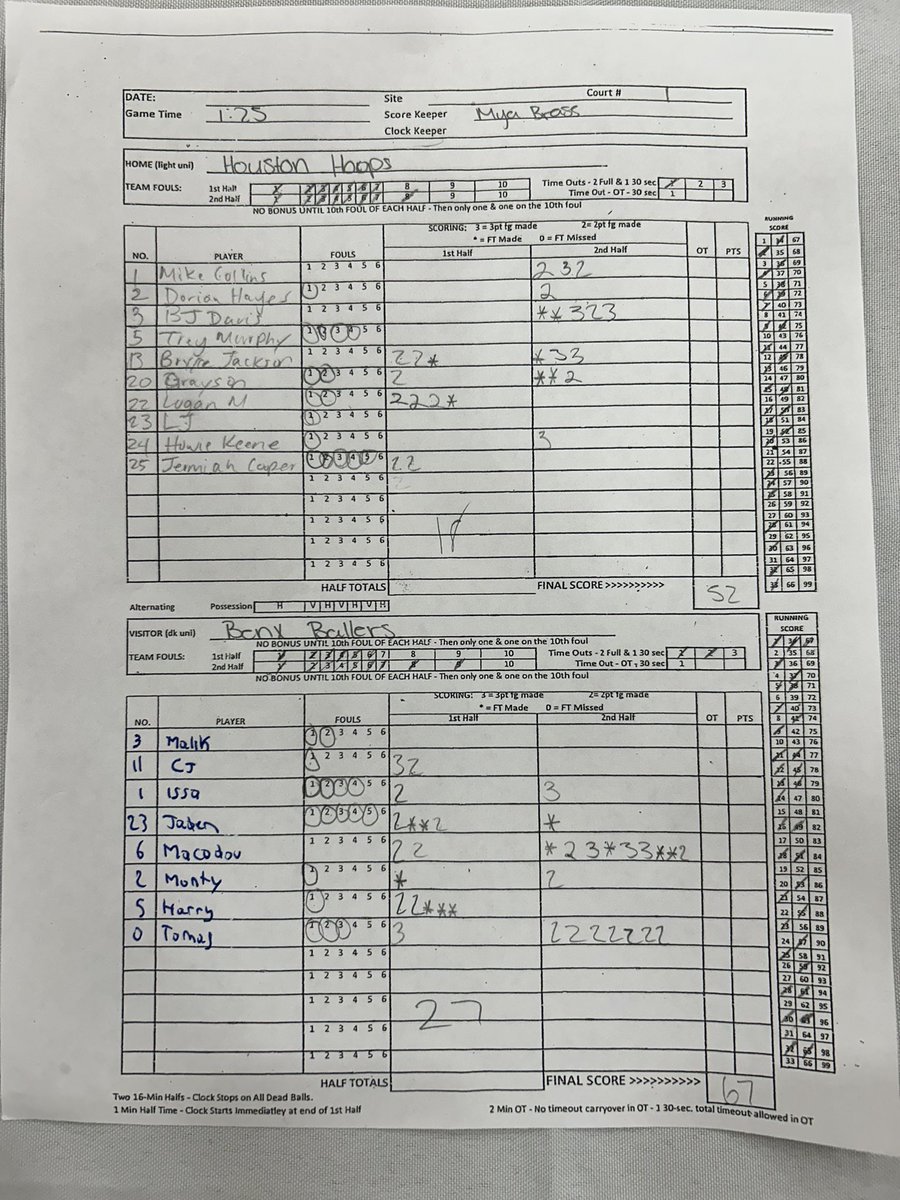 DATE: Site Court # 1
Game Time 1:25 Score Keeper Mya Brass
Clock Keeper
HOME (light uni) Houston Hoops
TEAM FOULS: 1st Half 1 2 3 4 5 6 7 8 9 10 Time Outs - 2 Full & 1 30 sec 1 2 3
2nd Half 1 2 3 4 5 6 7 8 9 10 Time Out - OT - 30 sec 1
NO BONUS UNTIL 10th FOUL OF EACH HALF - Then only one & one on the 10th foul
SCORING: 3 = 3pt fg made 2= 2pt fg made
* = FT Made 0 = FT Missed
NO. PLAYER FOULS 1st Half 2nd Half OT PTS
1 Mike Collins 1 2 3 4 5 6 232
2 Dorian Hayes 1 2 3 4 5 6 2
3 BJ Davis 1 2 3 4 5 6 **323
5 Trey Murphy 1 2 3 4 5 6
13 Bryce Jackson 1 2 3 4 5 6 22* *33
20 Grayson 1 2 3 4 5 6 2 **2
22 Logan M 1 2 3 4 5 6 222*
23 LJ 1 2 3 4 5 6
24 Howie Keene 1 2 3 4 5 6 3
25 Jermiah Caper 1 2 3 4 5 6 22
1 2 3 4 5 6
1 2 3 4 5 6
1 2 3 4 5 6
1 2 3 4 5 6
1 2 3 4 5 6
18
HALF TOTALS FINAL SCORE >>>>>>>>>> 52
Alternating Possession H V H V H V H
RUNNING
SCORE
1 34 67
2 35 68
3 36 69
4 37 70
5 38 71
6 39 72
7 40 73
8 41 74
9 42 75
10 43 76
11 44 77
12 45 78
13 46 79
14 47 80
15 48 81
16 49 82
17 50 83
18 51 84
19 52 85
20 53 86
21 54 87
22 55 88
23 56 89
24 57 90
25 58 91
26 59 92
27 60 93
28 61 94
29 62 95
30 63 96
31 64 97
32 65 98
33 66 99
VISITOR (dk uni) Banx Ballers
NO BONUS UNTIL 10th FOUL OF EACH HALF - Then only one & one on the 10th foul
TEAM FOULS: 1st Half 1 2 3 4 5 6 7 8 9 10 Time Outs - 2 Full & 1 30 sec 1 2 3
2nd Half 1 2 3 4 5 6 7 8 9 10 Time Out - OT - 30 sec 1
NO BONUS UNTIL 10th FOUL OF EACH HALF - Then only one & one on the 10th foul
SCORING: 3 = 3pt fg made 2= 2pt fg made
* = FT Made 0 = FT Missed
NO. PLAYER FOULS 1st Half 2nd Half OT PTS
3 Malik 1 2 3 4 5 6
11 CJ 1 2 3 4 5 6 32
1 Issa 1 2 3 4 5 6 2 3
23 Jaden 1 2 3 4 5 6 2**2 *
6 Macodou 1 2 3 4 5 6 22 *23*33**2
2 Monty 1 2 3 4 5 6 * 2
5 Harry 1 2 3 4 5 6 22***
0 Tomas 1 2 3 4 5 6 3 2222222
1 2 3 4 5 6
1 2 3 4 5 6
1 2 3 4 5 6
1 2 3 4 5 6
1 2 3 4 5 6
27
HALF TOTALS FINAL SCORE >>>>>>>>>> 67
RUNNING
SCORE
1 34 67
2 35 68
3 36 69
4 37 70
5 38 71
6 39 72
7 40 73
8 41 74
9 42 75
10 43 76
11 44 77
12 45 78
13 46 79
14 47 80
15 48 81
16 49 82
17 50 83
18 51 84
19 52 85
20 53 86
21 54 87
22 55 88
23 56 89
24 57 90
25 58 91
26 59 92
27 60 93
28 61 94
29 62 95
30 63 96
31 64 97
32 65 98
33 66 99
Two 16-Min Halfs - Clock Stops on All Dead Balls.
1 Min Half Time - Clock Starts Immediatley at end of 1st Half
2 Min OT - No timeout carryover in OT - 1 30-sec. total timeout allowed in OT